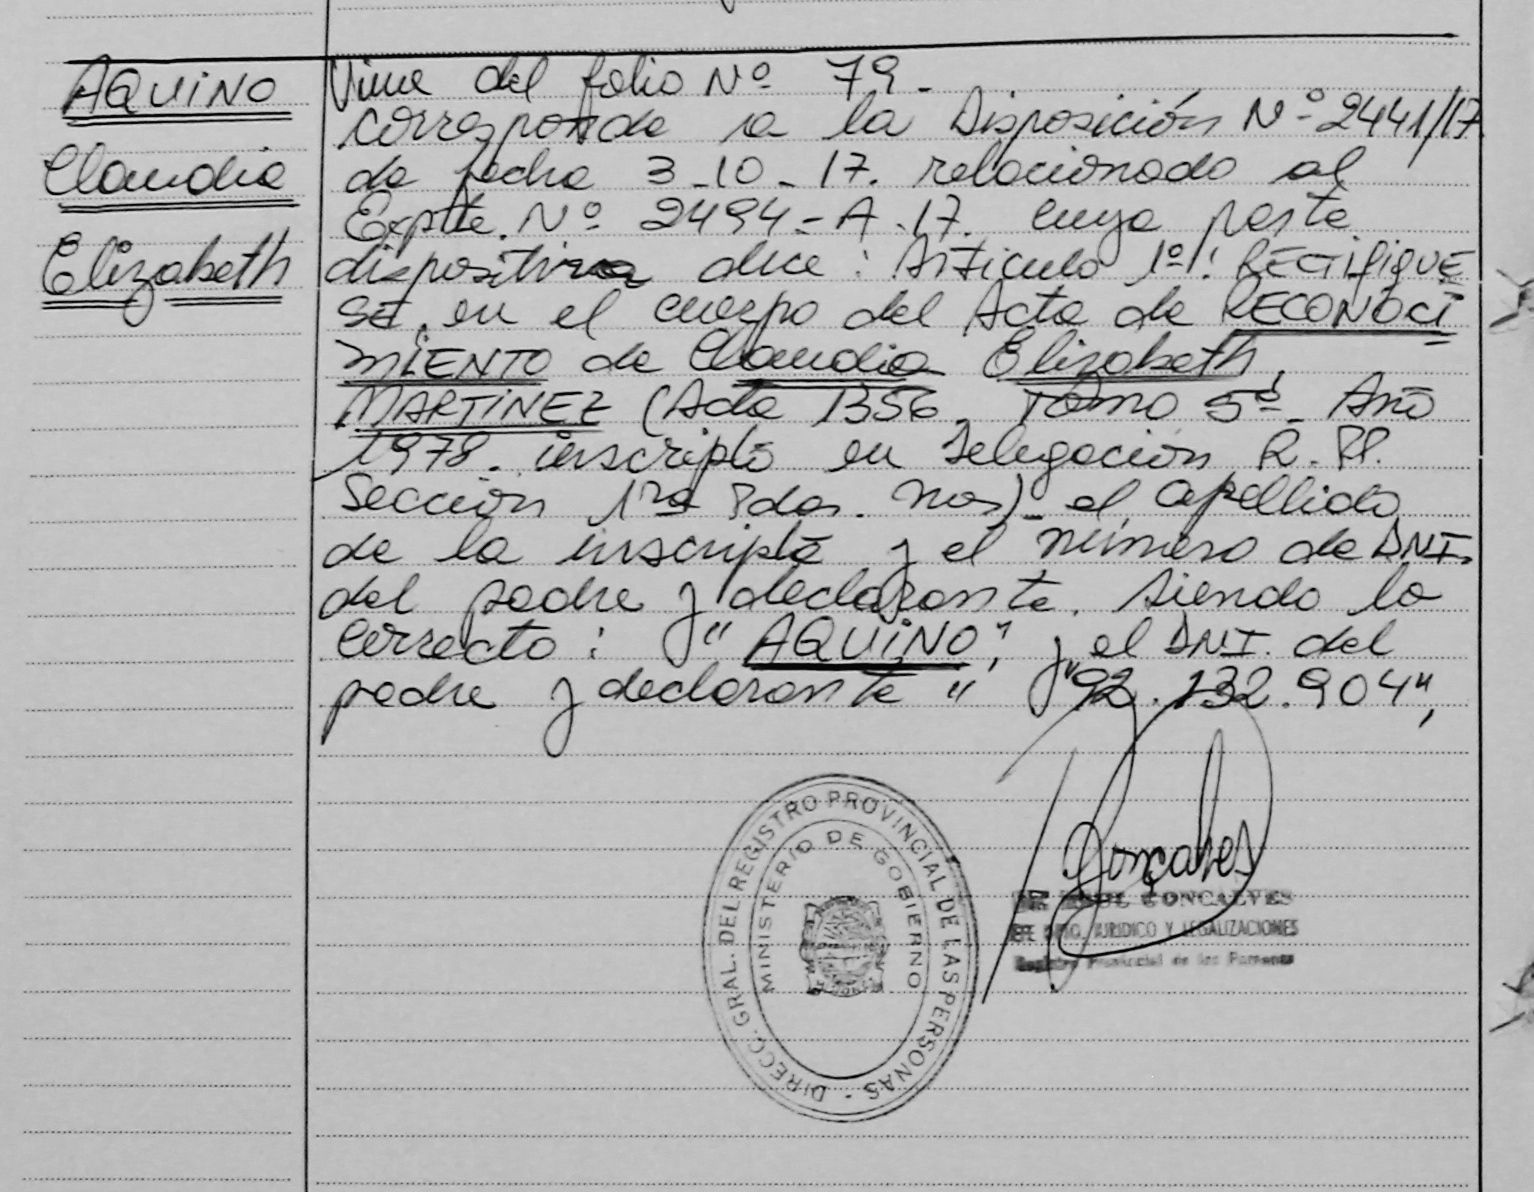 AQUINO
Claudia
Elizabeth
Viene del folio Nº 79.
Corresponde a la Disposición Nº 2441/17
de fecha 3-10-17. relacionado al
Expte. Nº 2494-A-17. cuya parte
dispositiva dice: Artículo 1º: RECTIFIQUE
SE, en el cuerpo del Acta de RECONOCI
MIENTO de Claudia Elizabeth
MARTINEZ (Acta 1356, Tomo 5º. Año
1978. inscripto en Delegación R.PP.
Sección 1ra Pdas. Mnes) el apellido
de la inscripta y el número de DNI.
del padre y declarante. Siendo lo
correcto: "AQUINO", y el DNI. del
padre y declarante " "92.132.904",
DIRECC. GRAL. DEL REGISTRO PROVINCIAL DE LAS PERSONAS -
MINISTERIO DE GOBIERNO
Gonçalves
GONCALVES
JURIDICO Y LEGALIZACIONES
Registro Provincial de las Personas